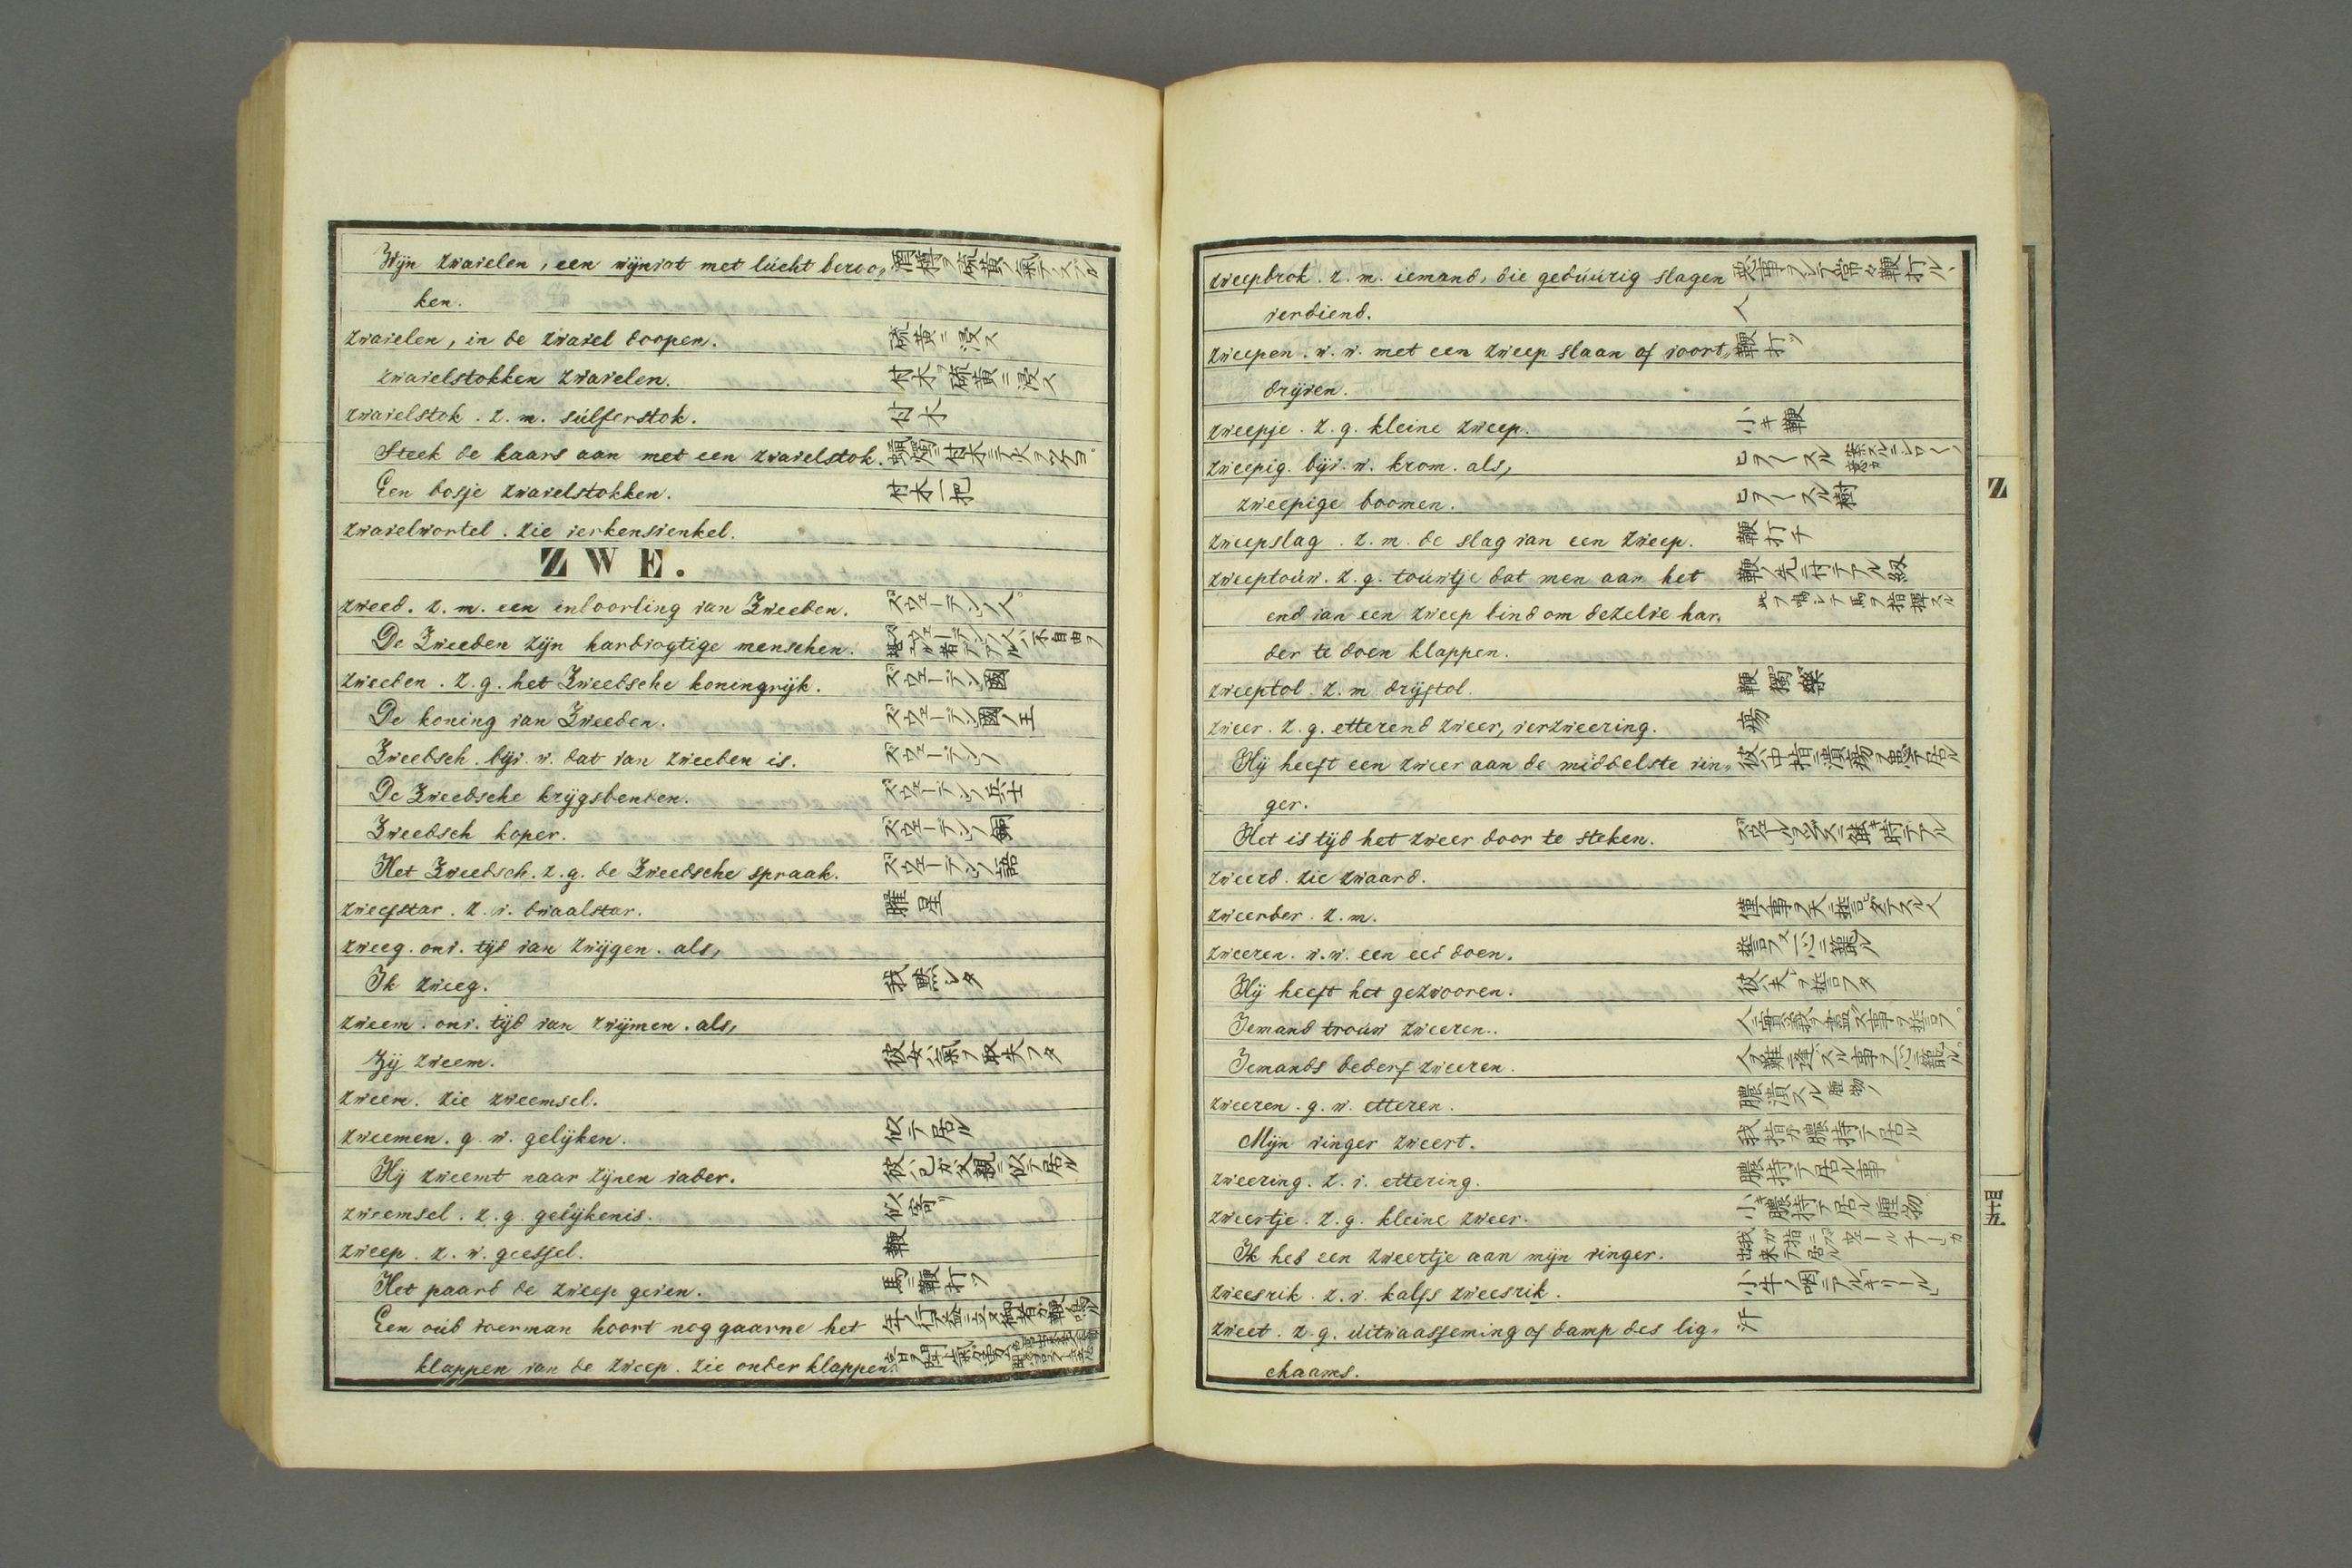 Wijn zwavelen, een wijnvat met lúcht beroo„ 酒樽ヲ硫黄ノ氣デイブル
ken.
zwavelen, in de zwavel doopen. 硫黄ニ浸ス
zwavelstokken zwavelen. 付木ヲ硫黄ニ浸ス
zwavelstok. z. m. súlferstok. 付木
Steek de kaars aan met een zwavelstok. 蠟燭ニ付木ニテ火ヲツケヨ
Een bosje zwavelstokken. 付木一把
zwavelwortel. zie verkensvenkel.
ZWE.
zweed. z. m. een inboorling van Zweeden. ズウェーデンノ人
De Zweeden zijn hardvogtige menschen.
zweeden. z. g. het Zweedsche koningrijk. ズウェーデン國
De koning van Zweeden. ズウェーデン國ノ王
Zweedsch. bijv. w. dat van zweeden is. ズウェーデンノ
De Zweedsche krijgsbenden. ズウェーデンノ兵士
Zweedsch koper. ズウェーデンノ銅
Het Zweedsch. z. g. de Zweedsche spraak. ズウェーデンノ語
zweefstar. z. v. dwaalstar.
zweeg. onv. tijd van zwijgen. als,
Ik zweeg. 我黙シタ
zweem. onv. tijd van zwijmen. als,
Zij zweem. 彼女ハ氣ヲ取失フタ
zweem. zie zweemsel.
zweemen. g. w. gelijken. 似テ居ル
Hij zweemt naar zijnen vader. 彼ハ己ガ父親ニ似テ居ル
zweemsel. z. g. gelijkenis. 似寄リ
zweep. z. v. geessel. 鞭
Het paard de zweep geven. 馬ニ鞭打ツ
Een oúd voerman hoort nog gaarne het
klappen van de zweep. zie onder klappen.
zweepbrok. z. m. iemand, die gedúúrig slagen 悪事ヲシテ常々鞭打ルヽ
verdiend. 人
zweepen. w. w. met een zweep slaan of voort„ 鞭打ツ
drijven.
zweepje. z. g. kleine zweep. 小キ鞭
zweepig. bijv. w. krom. als,
zweepige boomen.
zweepslag. z. m. de slag van een zweep. 鞭打チ
zweeptoúw. z. g. toúwtje dat men aan het 鞭ノ先ニ付テアル紐
end van een zweep bind om dezelve har„ 此ヲ鳴シテ馬ヲ指揮スル
der te doen klappen.
zweeptol. z. m. drijftol. 鞭獨樂
zweer. z. g. etterend zweer, verzweering. 瘍
Hij heeft een zweer aan de middelste vin„ 彼ハ中指ニ潰瘍ヲ患テ居ル
ger.
Het is tijd het zweer door te steken.
zweerd. zie zwaard.
zweerder. z. m.
zweeren. w. w. een eed doen.
Hij heeft het gezwooren. 彼ハ夫ヲ誓フタ
Iemand troúw zweeren.
Iemands bederf zweeren.
zweeren. g. w. etteren. 膿潰スル 腫物ノ
Mijn vinger zweert. 我指ガ膿持テ居ル
zweering. z. v. ettering. 膿持テ居ル事
zweertje. z. g. kleine zweer. 小キ膿持テ居ル腫物
Ik heb een zweertje aan mijn vinger.
zweesrik. z. v. kalfs zweesrik.
zweet. z. g. uitwaasseming of damp des lig„ 汗
chaams.
Z
四十五